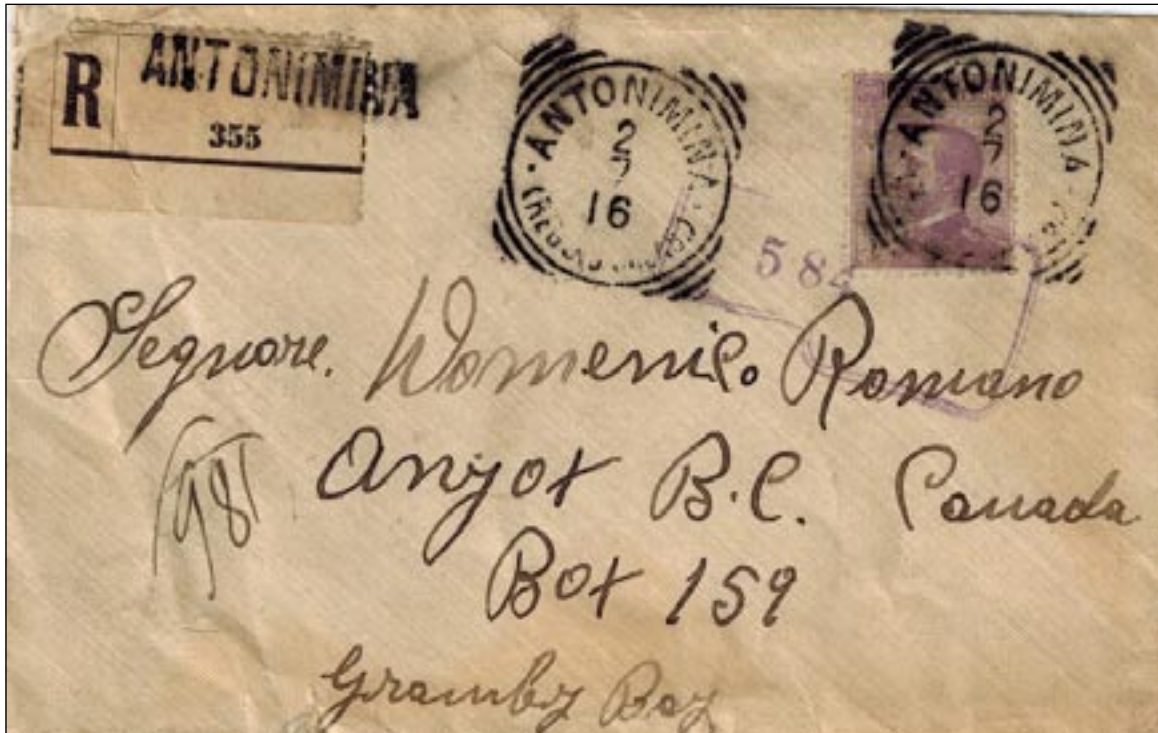 R ANTONIMINA
355
ANTONIMINA
2
7
16
ANTONIMINA
2
7
16
584
Segnore. Domenico Romano
981
Anyox B.C. Canada
Box 159
Granby Bay